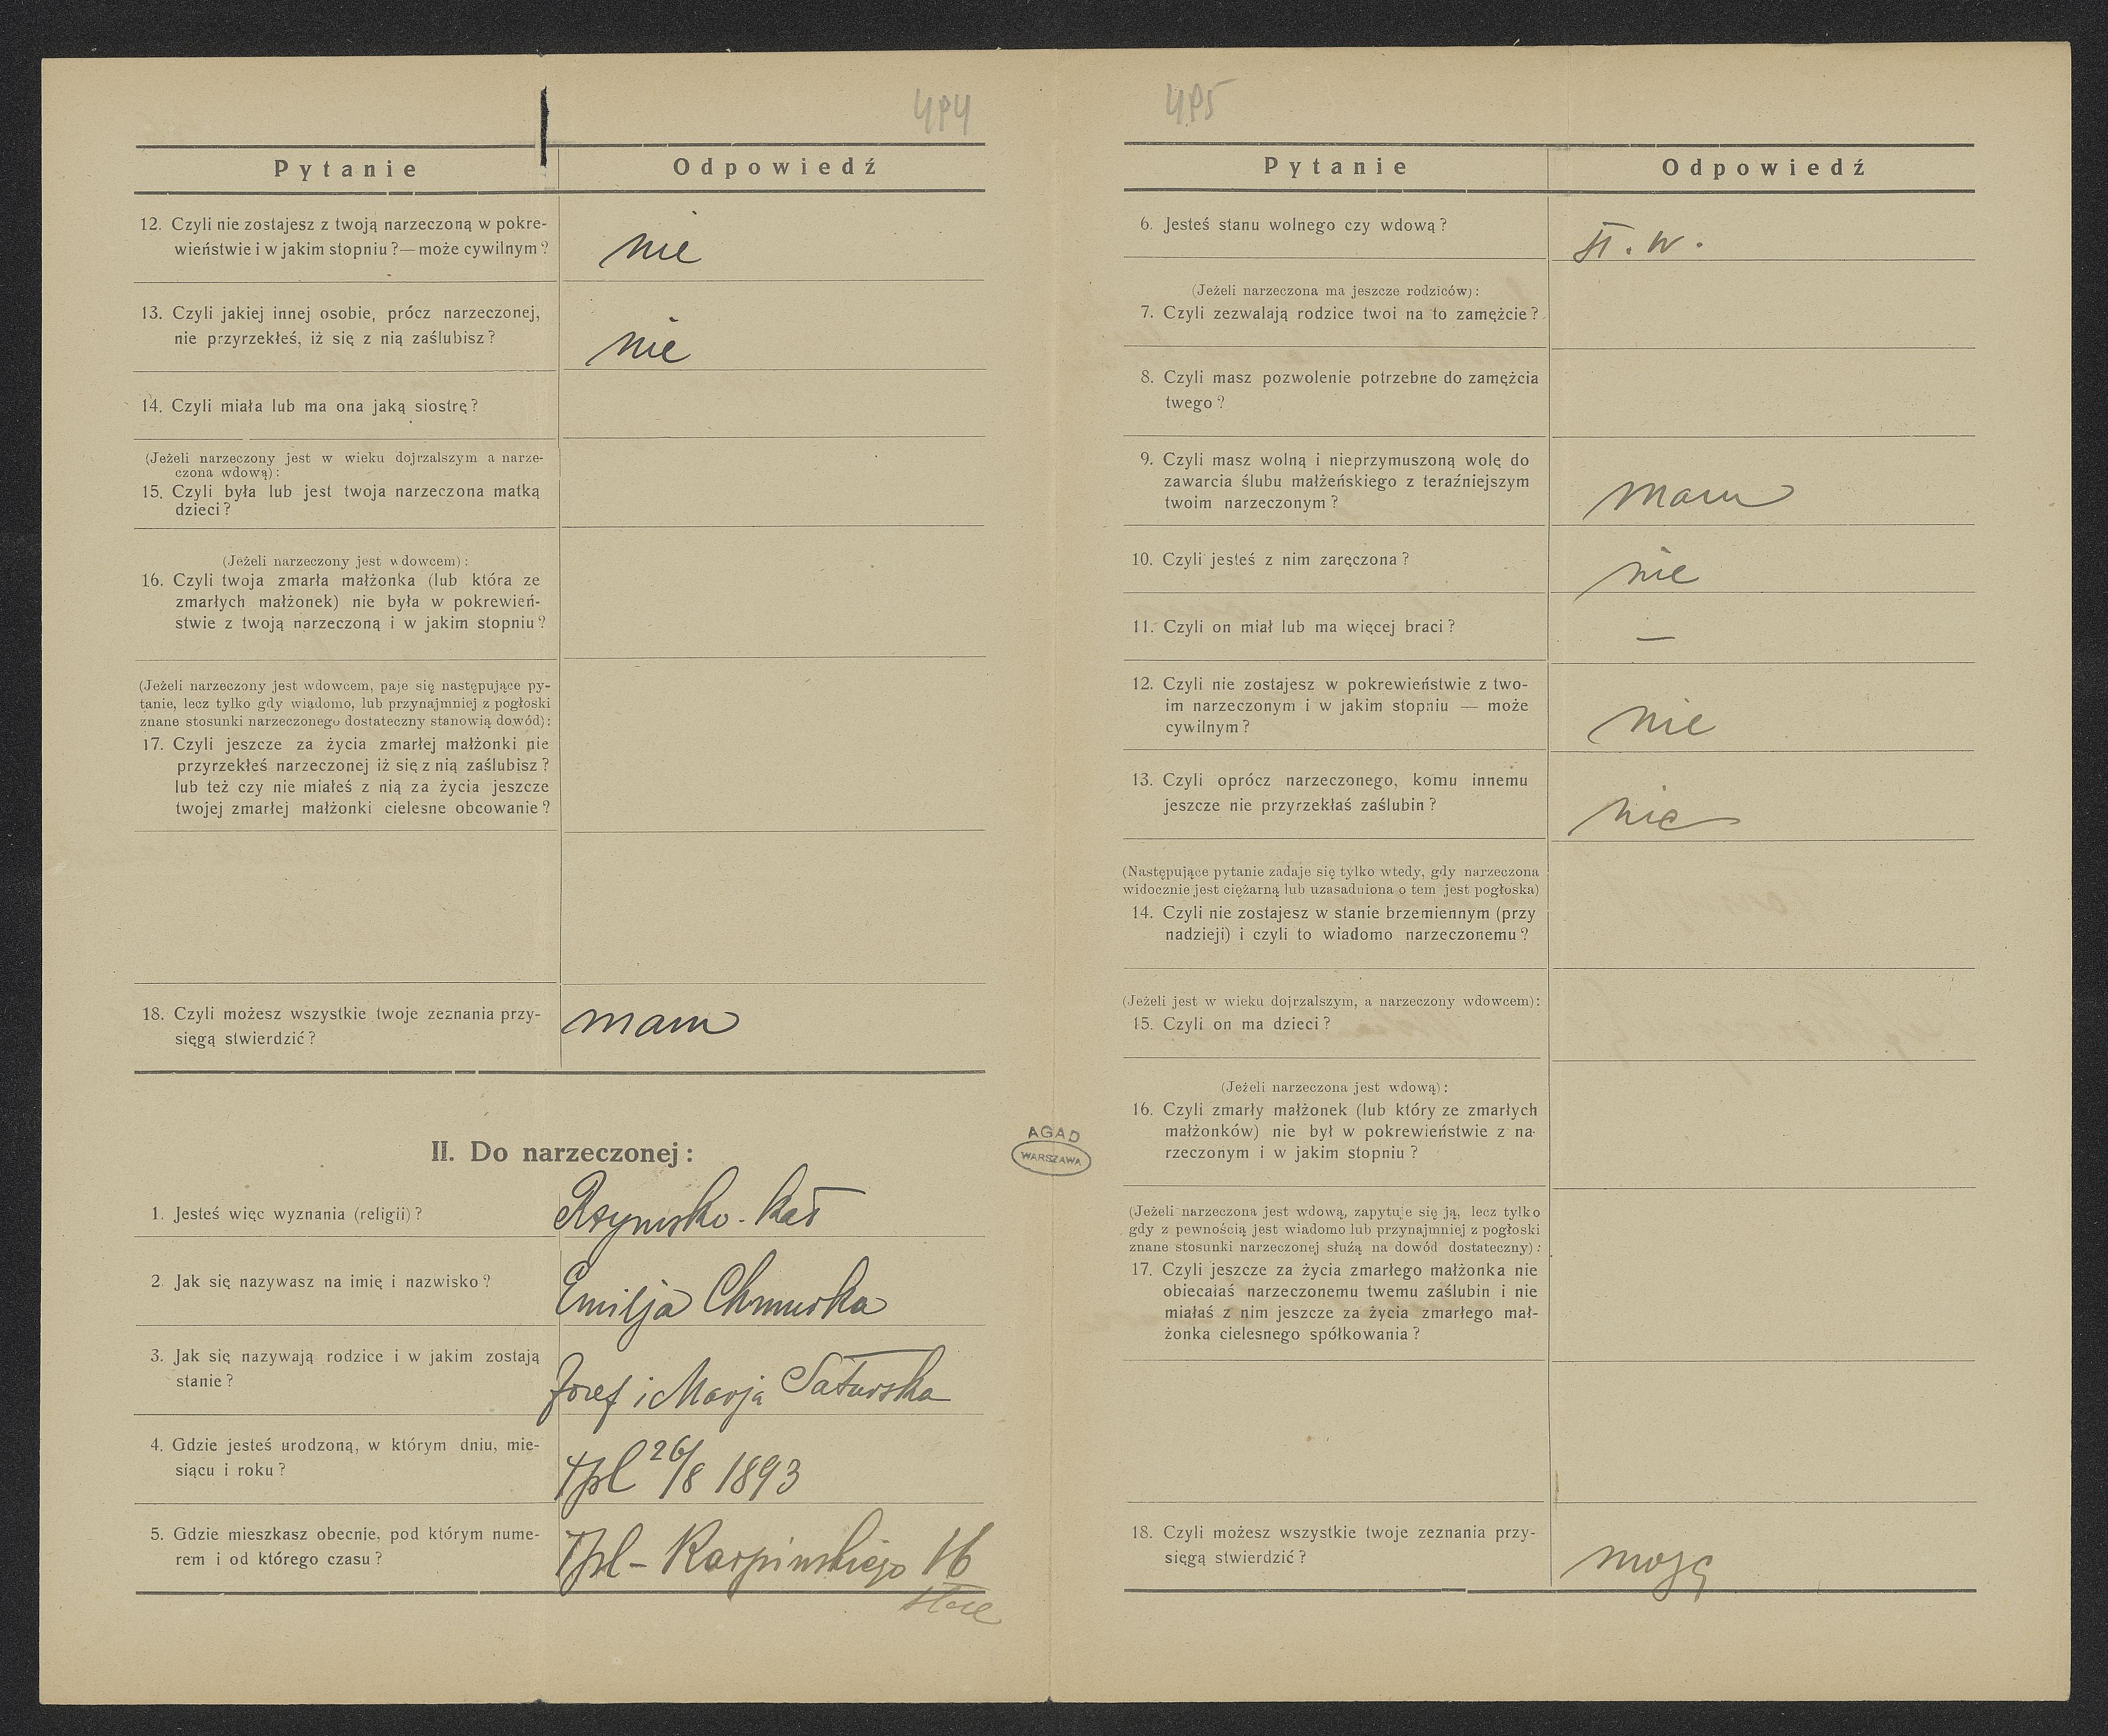 4P4
Pytanie Odpowiedź
12. Czyli nie zostajesz z twoją narzeczoną w pokre-
wieństwie i w jakim stopniu?—może cywilnym?
nie
13. Czyli jakiej innej osobie, prócz narzeczonej,
nie przyrzekłeś, iż się z nią zaślubisz?
nie
14. Czyli miała lub ma ona jaką siostrę?
(Jeżeli narzeczony jest w wieku dojrzalszym a narze-
czona wdową):
15. Czyli była lub jest twoja narzeczona matką
dzieci?
(Jeżeli narzeczony jest wdowcem):
16. Czyli twoja zmarła małżonka (lub która ze
zmarłych małżonek) nie była w pokrewień-
stwie z twoją narzeczoną i w jakim stopniu?
(Jeżeli narzeczony jest wdowcem, paje się następujące py-
tanie, lecz tylko gdy wiadomo, lub przynajmniej z pogłoski
znane stosunki narzeczonego dostateczny stanowią dowód):
17. Czyli jeszcze za życia zmarłej małżonki nie
przyrzekłeś narzeczonej iż się z nią zaślubisz?
lub też czy nie miałeś z nią za życia jeszcze
twojej zmarłej małżonki cielesne obcowanie?
18. Czyli możesz wszystkie twoje zeznania przy-
sięgą stwierdzić?
mam
II. Do narzeczonej:
1. Jesteś więc wyznania (religii)?
Rzymsko-kat
2. Jak się nazywasz na imię i nazwisko?
Emilja Chmurka
3. Jak się nazywają rodzice i w jakim zostają
stanie?
Józef i Marja
4. Gdzie jesteś urodzoną, w którym dniu, mie-
siącu i roku?
Tpl 26/8 1893
5. Gdzie mieszkasz obecnie, pod którym nume-
rem i od którego czasu?
Tpl - Karpinskiego 16
AGAD
WARSZAWA
4P5
Pytanie Odpowiedź
6. Jesteś stanu wolnego czy wdową?
st. w.
(Jeżeli narzeczona ma jeszcze rodziców):
7. Czyli zezwalają rodzice twoi na to zamężcie?
8. Czyli masz pozwolenie potrzebne do zamężcia
twego?
9. Czyli masz wolną i nieprzymuszoną wolę do
zawarcia ślubu małżeńskiego z teraźniejszym
twoim narzeczonym?
mam
10. Czyli jesteś z nim zaręczona?
nie
11. Czyli on miał lub ma więcej braci?
—
12. Czyli nie zostajesz w pokrewieństwie z two-
im narzeczonym i w jakim stopniu — może
cywilnym?
nie
13. Czyli oprócz narzeczonego, komu innemu
jeszcze nie przyrzekłaś zaślubin?
nie
(Następujące pytanie zadaje się tylko wtedy, gdy narzeczona
widocznie jest ciężarną lub uzasadniona o tem jest pogłoska)
14. Czyli nie zostajesz w stanie brzemiennym (przy
nadzieji) i czyli to wiadomo narzeczonemu?
(Jeżeli jest w wieku dojrzalszym, a narzeczony wdowcem):
15. Czyli on ma dzieci?
(Jeżeli narzeczona jest wdową):
16. Czyli zmarły małżonek (lub który ze zmarłych
małżonków) nie był w pokrewieństwie z na-
rzeczonym i w jakim stopniu?
(Jeżeli narzeczona jest wdową, zapytuje się ją, lecz tylko
gdy z pewnością jest wiadomo lub przynajmniej z pogłoski
znane stosunki narzeczonej służą na dowód dostateczny):
17. Czyli jeszcze za życia zmarłego małżonka nie
obiecałaś narzeczonemu twemu zaślubin i nie
miałaś z nim jeszcze za życia zmarłego mał-
żonka cielesnego spółkowania?
18. Czyli możesz wszystkie twoje zeznania przy-
sięgą stwierdzić?
mogę